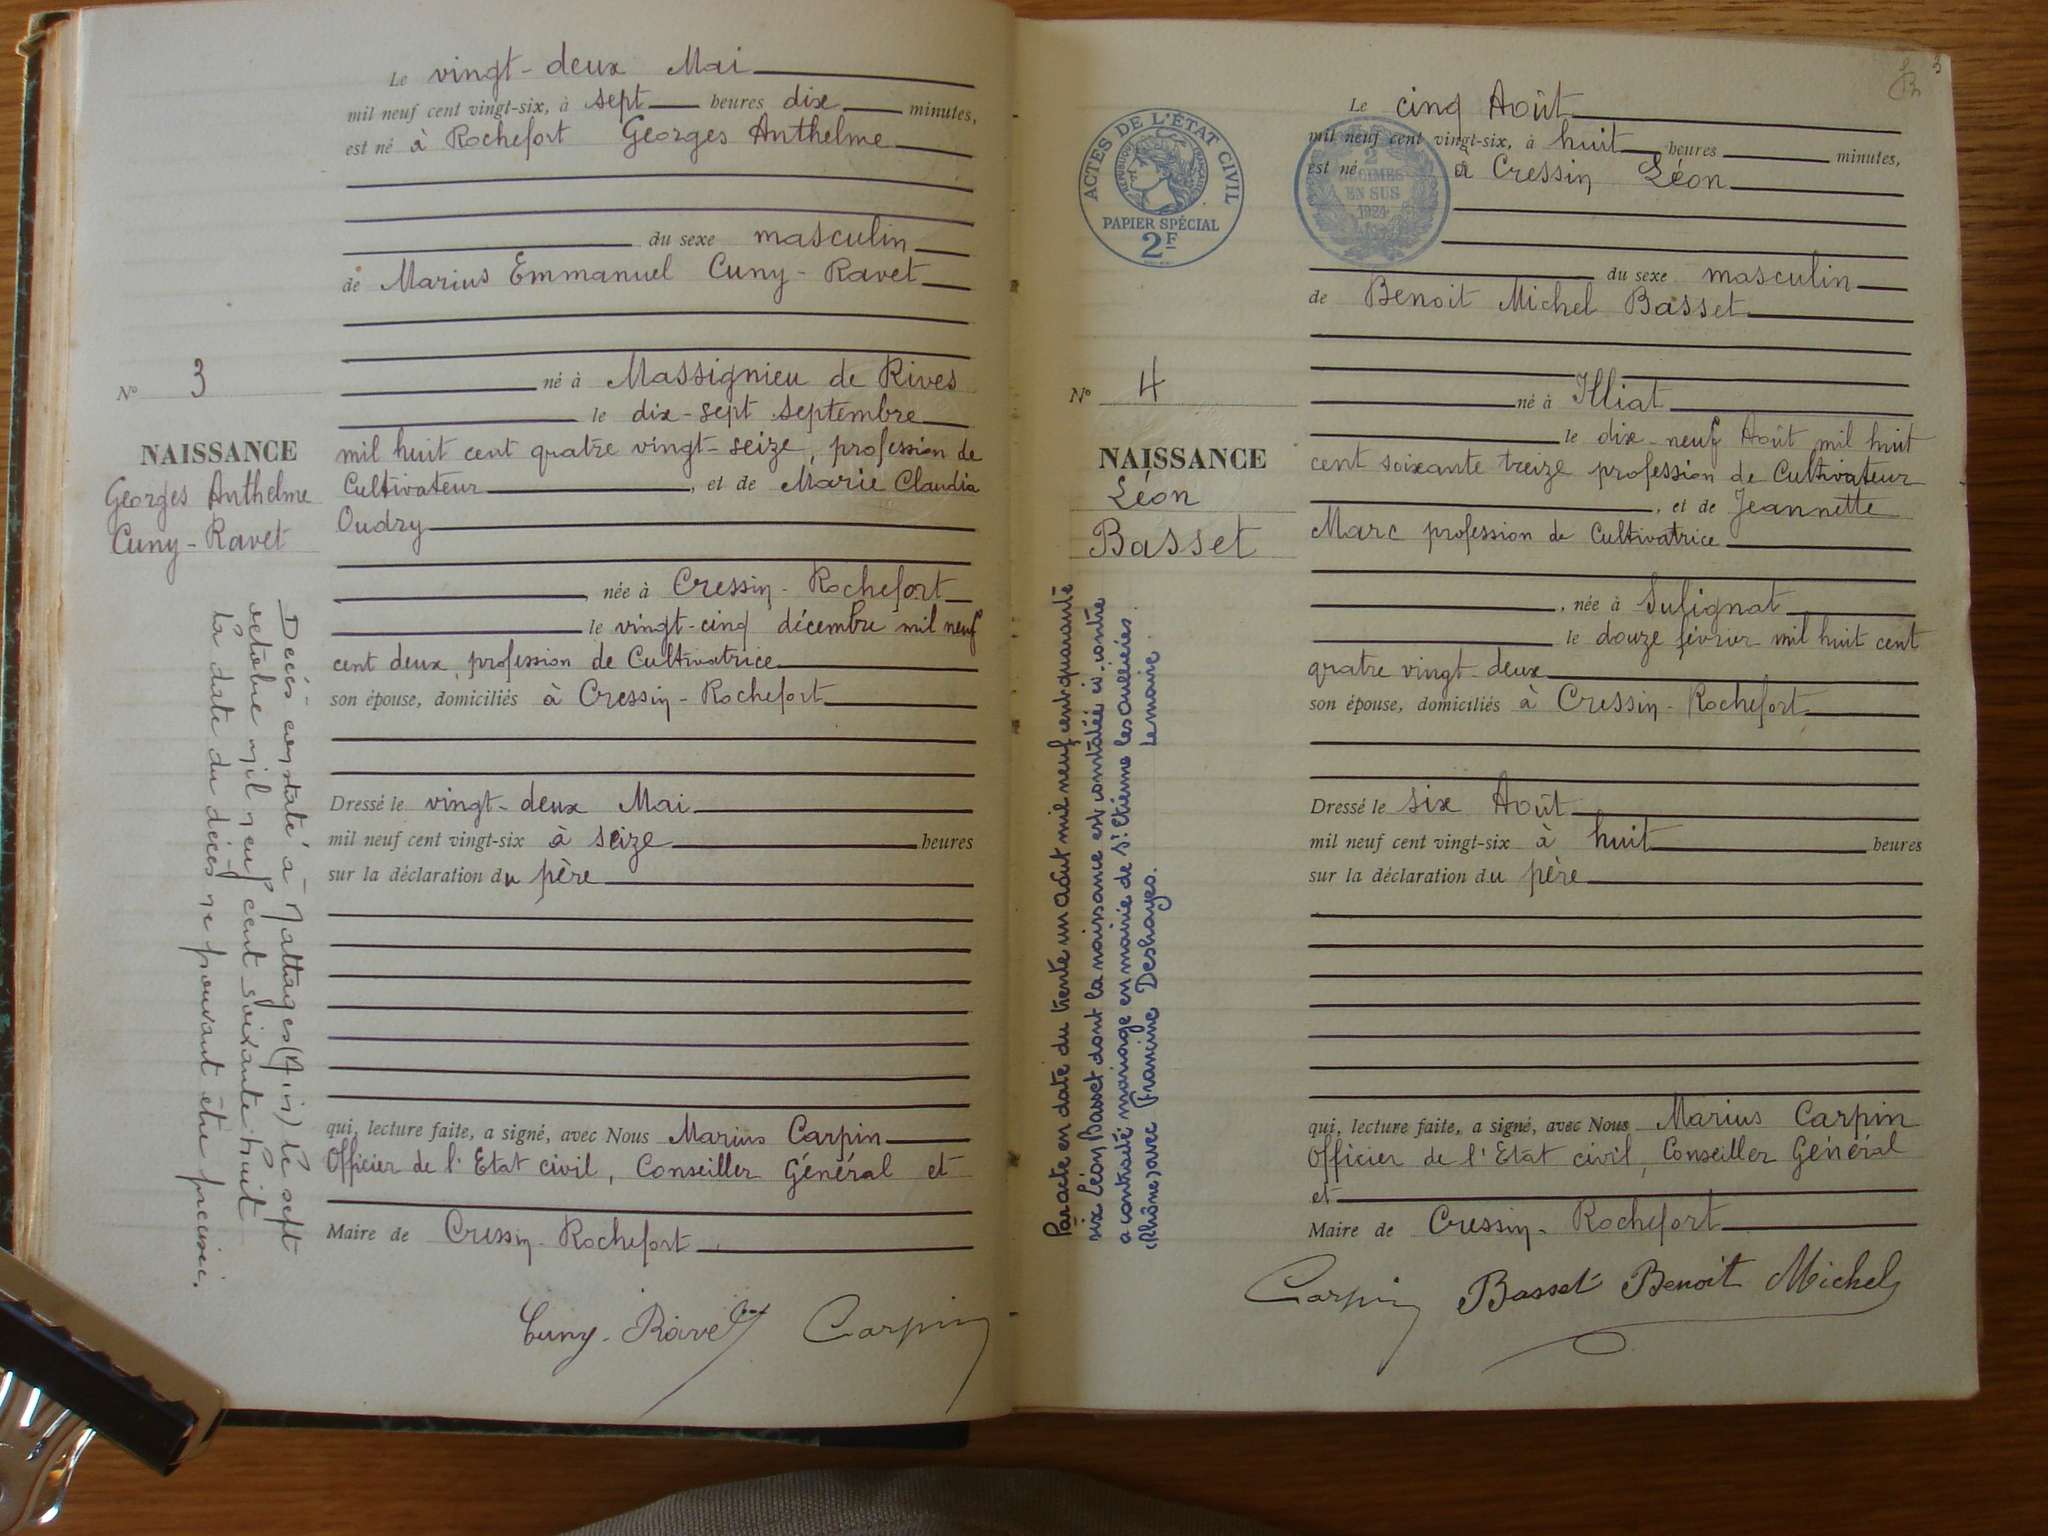 Le vingt-deux Mai
mil neuf cent vingt-six, à sept heures dix minutes,
est né à Rochefort Georges Anthelme
du sexe masculin
de Marius Emmanuel Cuny-Ravet
né à Massignieu de Rives
le dix-sept septembre
mil huit cent quatre vingt-seize, profession de
Cultivateur, et de Marie Claudia
Oudry
née à Cressin-Rochefort
le vingt-cinq décembre mil neuf
cent deux, profession de Cultivatrice
son épouse, domiciliés à Cressin-Rochefort
Dressé le vingt-deux Mai
mil neuf cent vingt-six à seize heures
sur la déclaration du père
qui, lecture faite, a signé, avec Nous Marius Carpin
Officier de l'Etat civil, Conseiller Général et
Maire de Cressin-Rochefort
Cuny-Ravet Carpin
N° 3
NAISSANCE
Georges Anthelme
Cuny-Ravet
Decès constaté à Nattages (Ain) le sept
octobre mil neuf cent soixante huit
la date du décès ne pouvant être précisée.
3
ACTES DE L'ÉTAT CIVIL
RÉPUBLIQUE FRANÇAISE
PAPIER SPÉCIAL
2F
2
DÉCIMES
EN SUS
1924
N° 4
NAISSANCE
Léon
Basset
Par acte en date du trente un août mil neuf cent quarante
six Léon Basset dont la naissance est constatée ci-contre
a contracté mariage en mairie de St Etienne les Oullières
(Rhône) avec Francine Deshayes. Le maire.
Le cinq Août
mil neuf cent vingt-six, à huit heures minutes,
est né à Cressin Léon
du sexe masculin
de Benoit Michel Basset
né à Illiat
le dix-neuf Août mil huit
cent soixante treize profession de Cultivateur
, et de Jeannette
Marc profession de Cultivatrice
, née à Sulignat
le douze février mil huit cent
quatre vingt-deux
son épouse, domiciliés à Cressin-Rochefort
Dressé le six Août
mil neuf cent vingt-six à huit heures
sur la déclaration du père
qui, lecture faite, a signé, avec Nous Marius Carpin
Officier de l'Etat civil, Conseiller Général
et
Maire de Cressin-Rochefort
Carpin Basset Benoit Michel